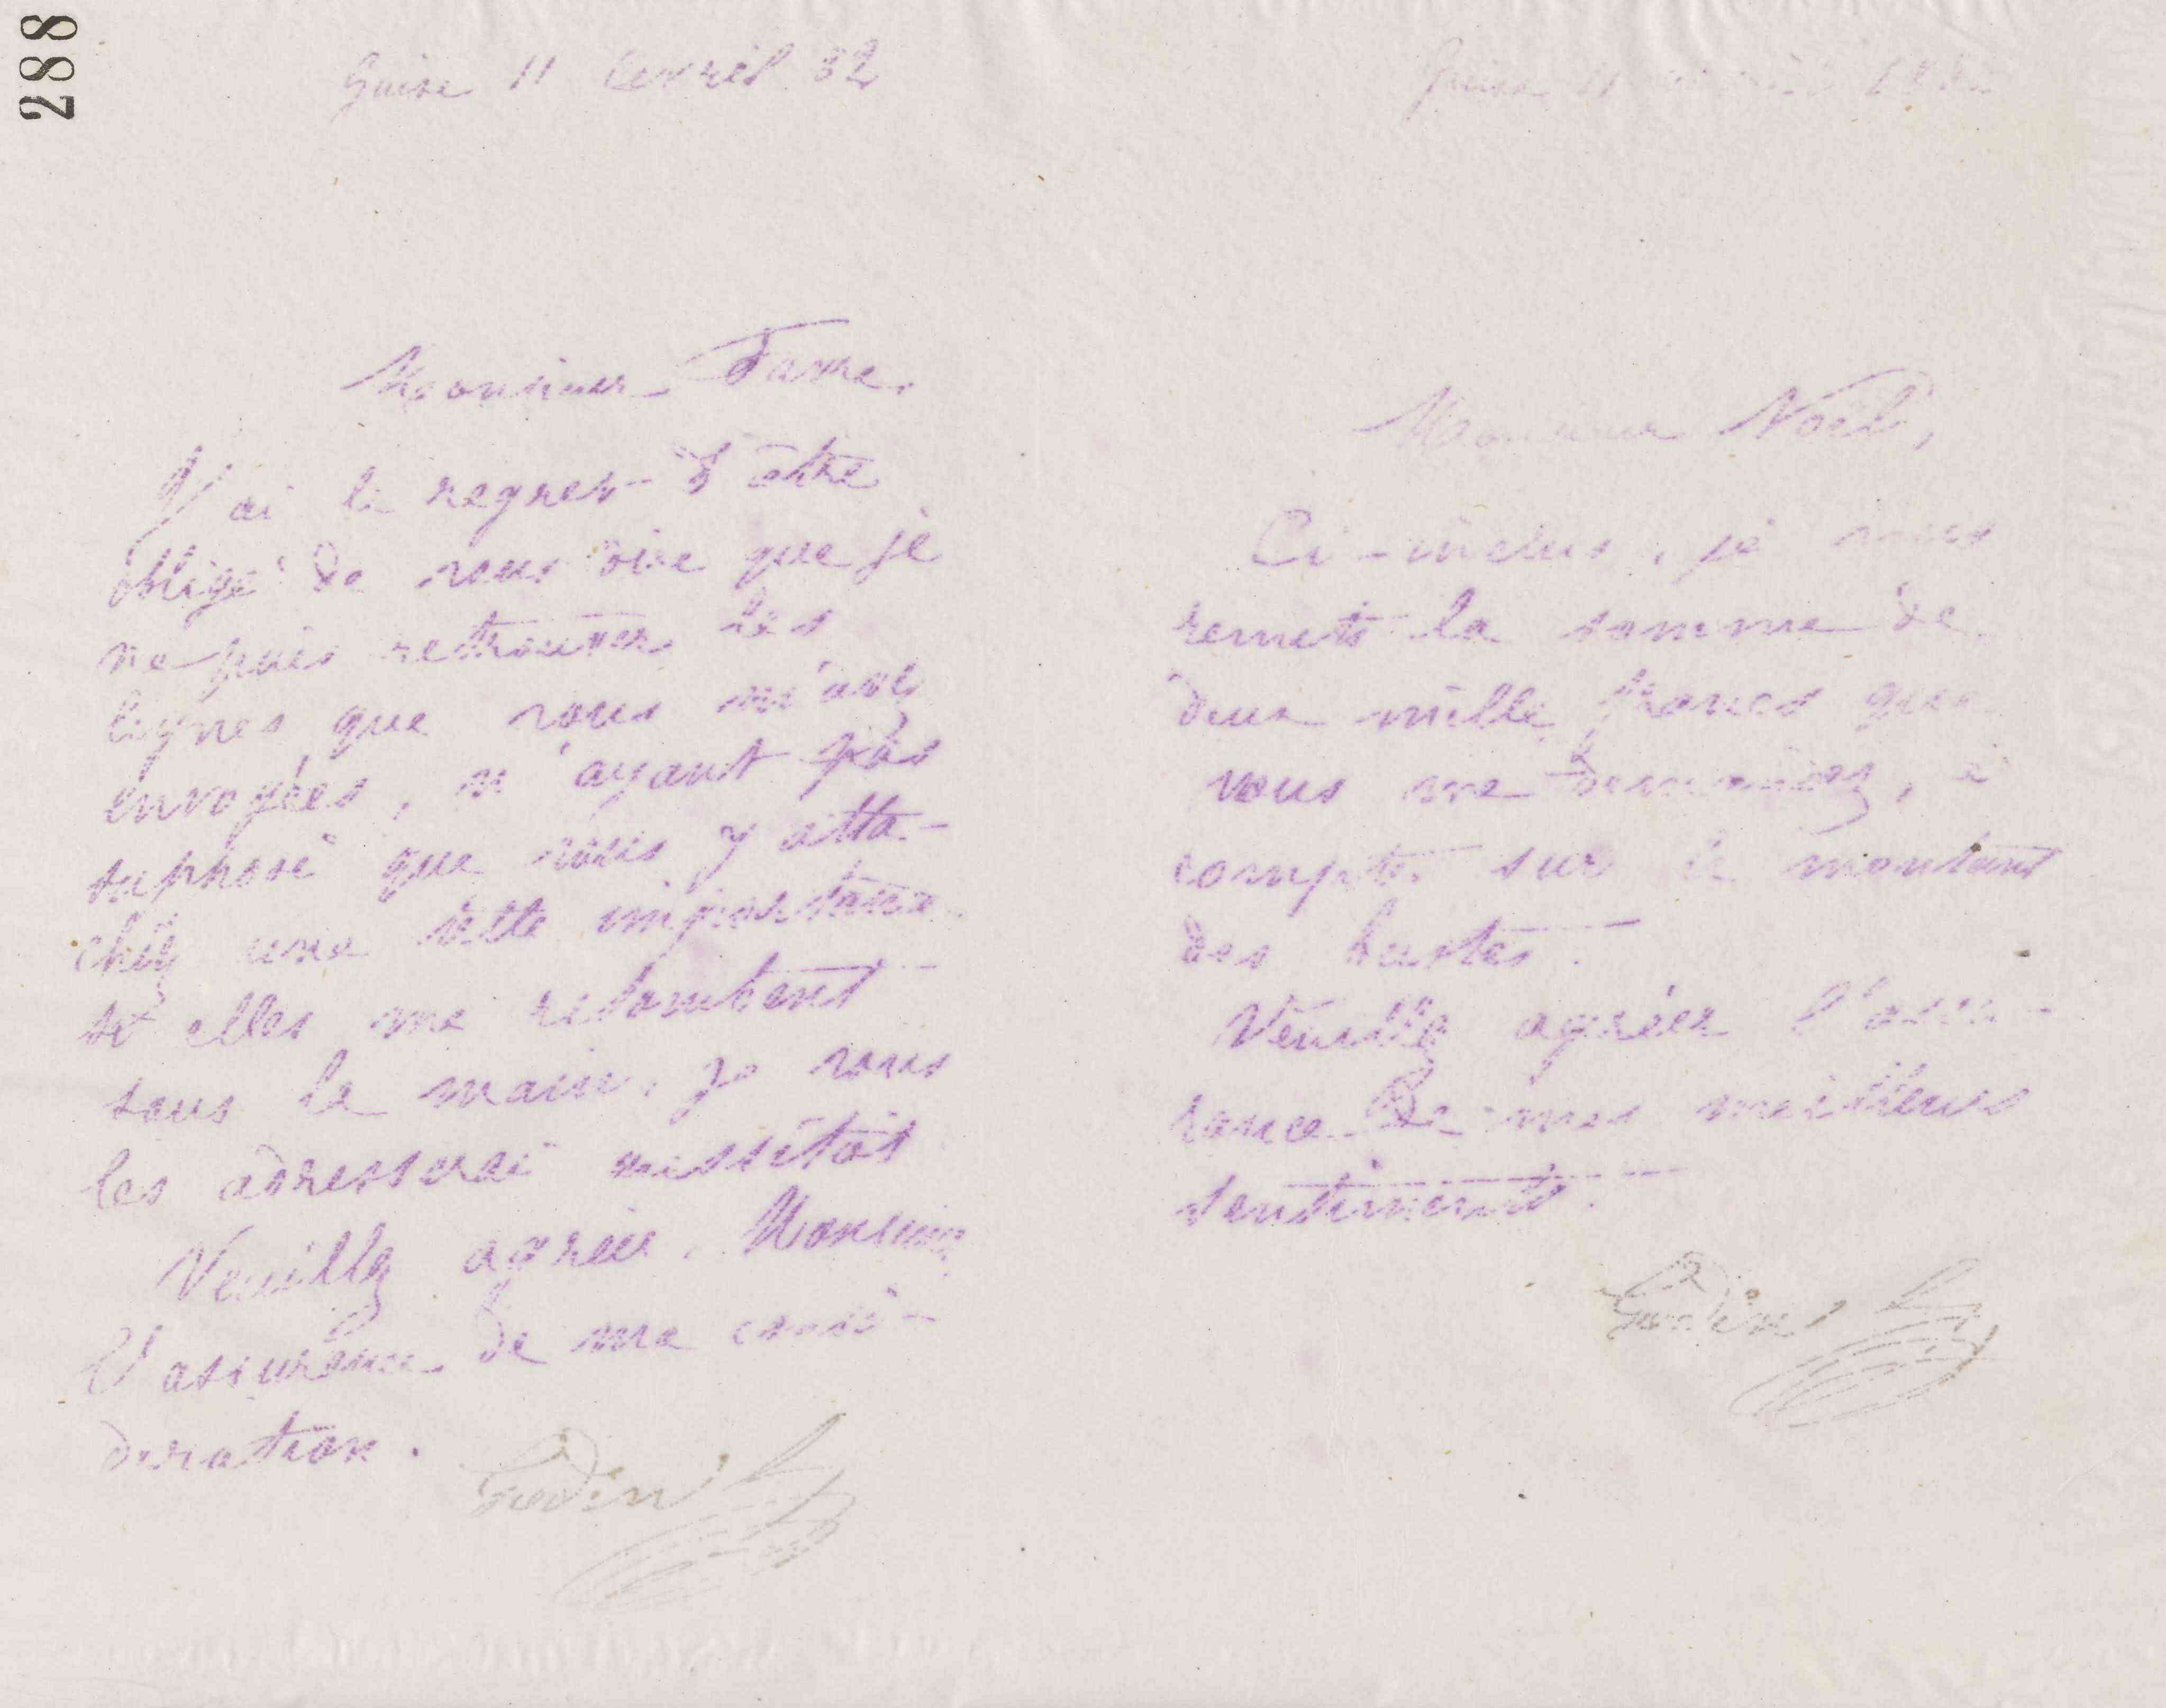 288
Guise 11 Avril 82
Monsieur Favre,
J'ai le regret d'être
obligé de vous dire que je
ne puis retrouver les
lignes que vous m'avez
envoyées, n'ayant pas
supposé que vous y atta-
chiez une telle importance.
Si elles me retombent
sous la main, je vous
les adresserai aussitôt
Veuillez agréer, Monsieur
l'assurance de ma consi-
dération.
Godin
Guise 11
Monsieur Noël,
Ci-inclus, je vous
remets la somme de
deux mille francs que
vous me demandez, à
compte sur le montant
des bustes.
Veuillez agréer l'assu-
rance de mes meilleurs
sentiments.
Godin